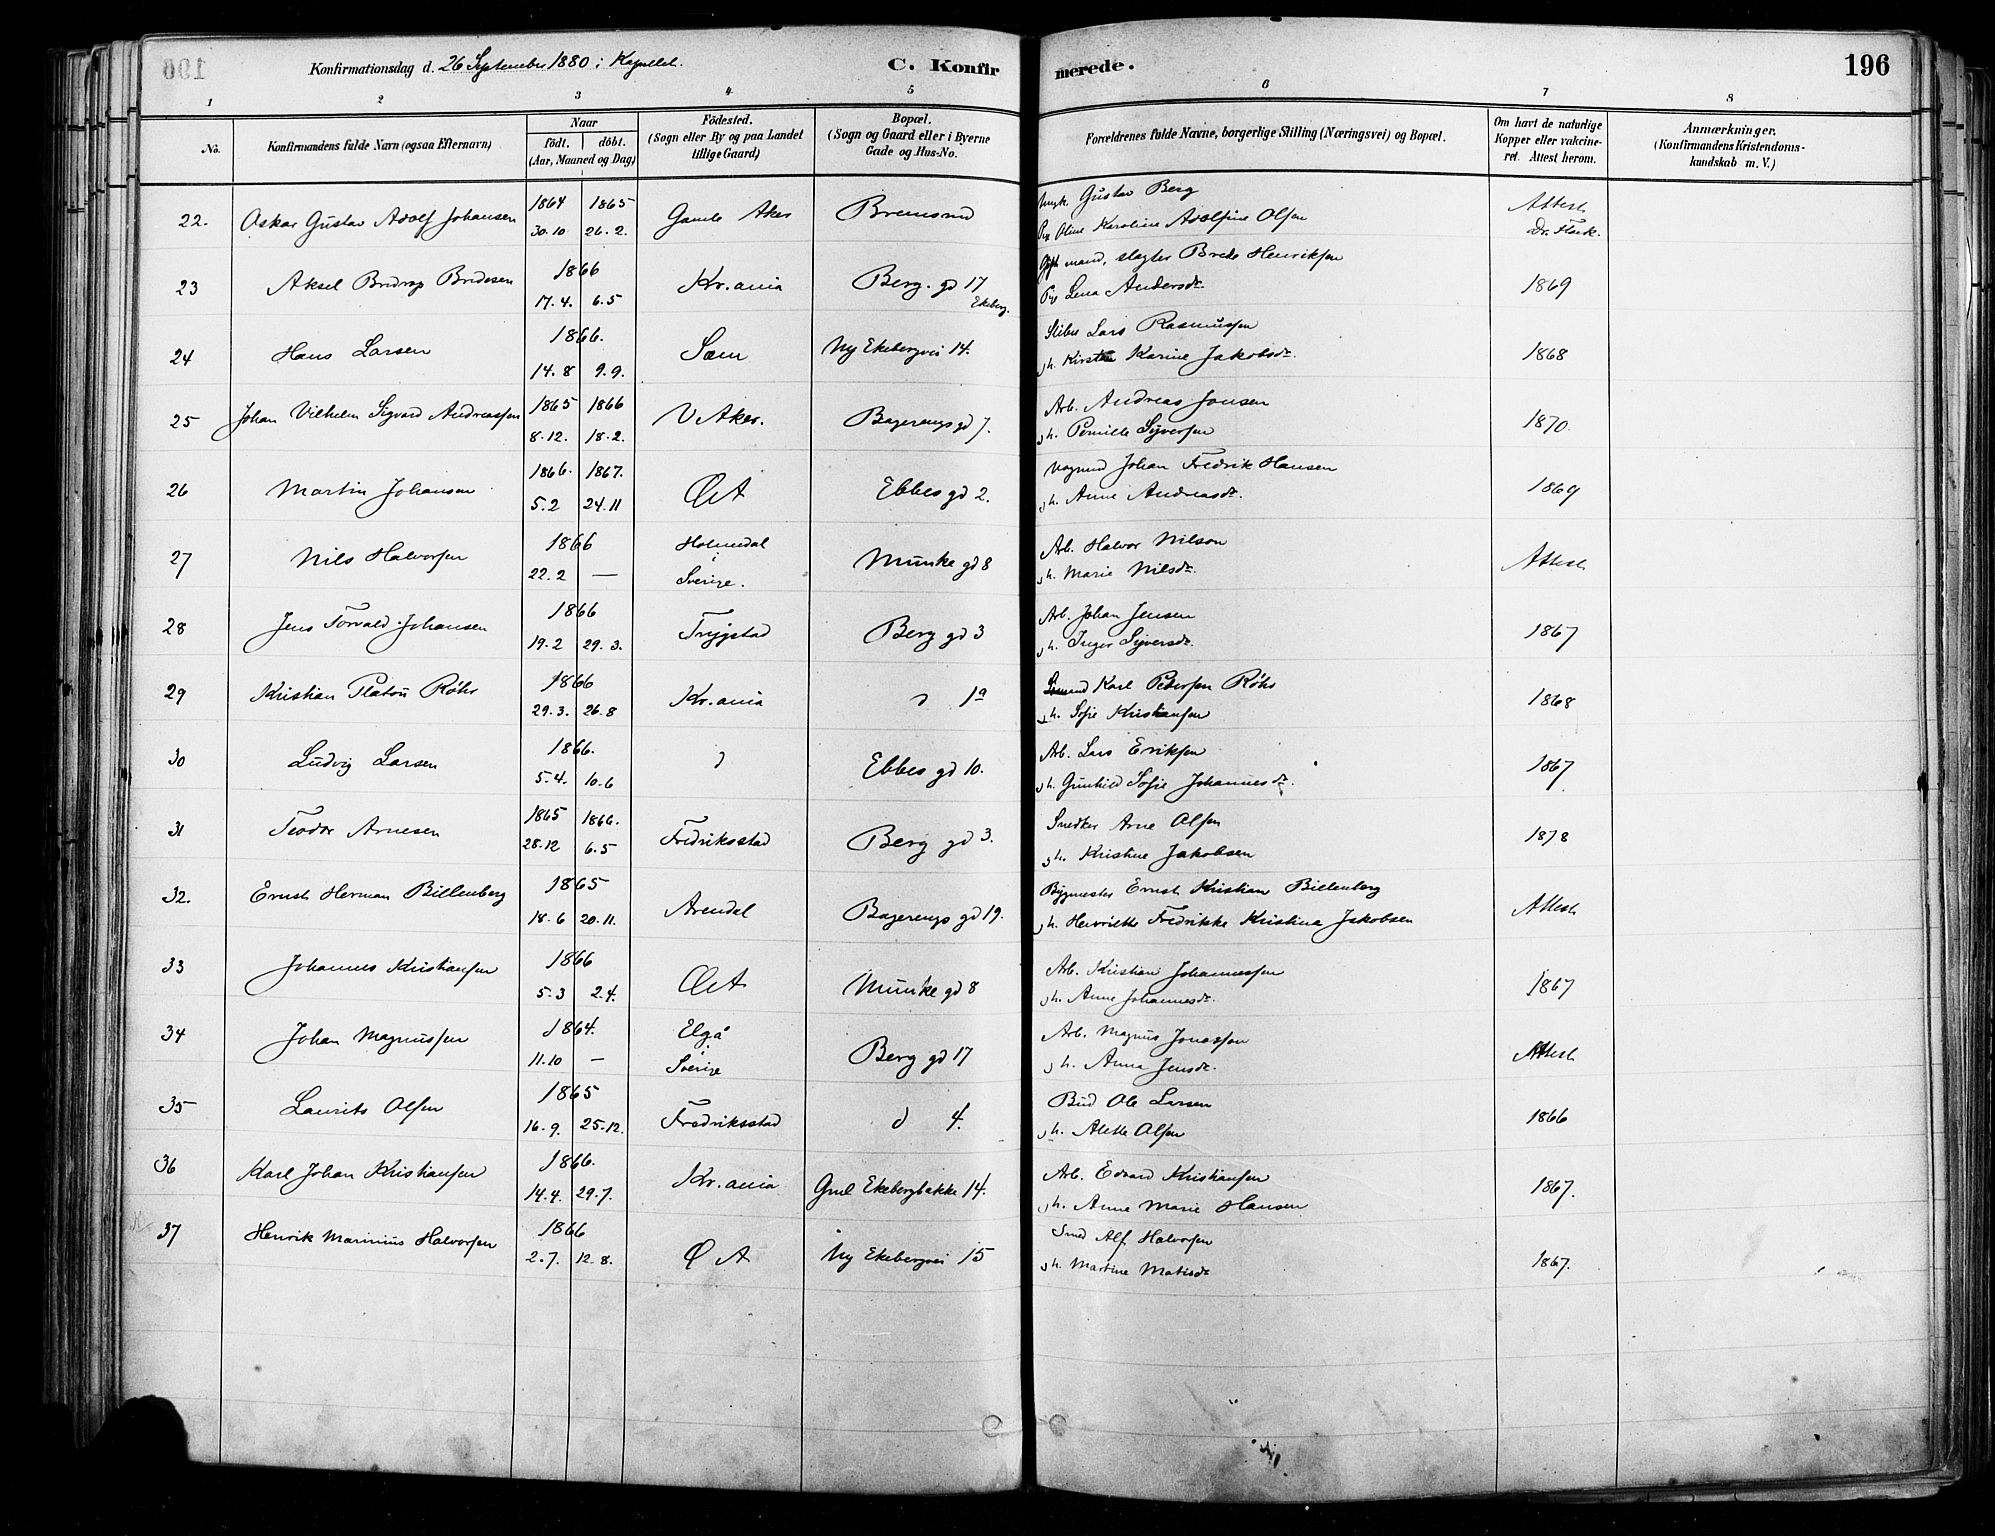 196
Konfirmationsdag d. 26 September 1880 i Kapellet.
C. Konfirmerede.
196
1 2 3 4 5 6 7 8
No.
Konfirmandens fulde Navn (ogsaa Efternavn)
Naar
født. døbt.
(Aar, Maaned og Dag)
Fødested.
(Sogn eller By og paa Landet
tillige Gaard)
Bopæl.
(Sogn og Gaard eller i Byerne
Gade og Hus-No.
Forældrenes fulde Navne, borgerlige Stilling (Næringsvei) og Bopæl.
Om havt de naturlige
Kopper eller vakcine-
ret. Attest herom.
Anmærkninger.
(Konfirmandens Kristendoms-
kundskab m. V.)
22. Oskar Gustav Adolf Johansen 1864 1865 30.10 26.2. Gamle Aker Gustav Berg
Oline Karoline Adolfine Olsen Attest
23 Aksel Bredesen 1866 17.4. 6.5 Kr.ania Berg. gd 17
Ekeberg. mand, slagter Brede Henriksen
Lena Andersdr. 1869
24 Hans Larsen 1866. 14.8 9.9. Sæm Ny Ekebergvei 14. Lars Rasmussen
h. Karine Jakobsdr. 1868
25 Johan Vilhelm Sigvard Andreassen 1865 1866 8.12. 18.2. V Aker. Bøgerengs gd 7. Arb. Andreas Jonsen
h. Pernille Syversen 1870.
26 Martin Johansen 1866. 1867. 5.2 24.11 Ø A Ebbes gd 2. Vognmd Johan Fredrik Hansen
h. Anne Andreasdr. 1869
27 Nils Halvorsen 1866 22.2 — Holmedal
i
Sverige. Munke gd 8 Arb. Halvor Nilson
h. Marie Nilsdr. Attest
28 Jens Torvald Johansen 1866 19.2 29.3. Trygstad Berg gd 3 Arb. Johan Jensen
h. Inger Syversdr. 1867
29 Kristian Platou Røhr 1866 29.3. 26.8 Kr.ania d 1a Karl Petersen Røhr
h. Sofie Kristiansen 1868
30 Ludvig Larsen 1866. 5.4. 10.6 d Ebbes gd 10. Arb. Lars Eriksen
h. Gunhild Sofie Johannesdr. 1867
31 Teodor Arnesen 1865 1866. 28.12 6.5 Fredriksstad Berg gd 3. Snedker Arne Olsen
h. Kristine Jakobsen 1878
32. Ernst Herman Billenberg 1865 18.6 20.11. Arendal Bøgerengs gd 19. Bygmester Ernst Kristian Billenberg
h. Henriette Fredrikke Kristina Jakobsen Attest
33 Johannes Kristiansen 1866 5.3 2.4. Ø A Munke gd 8 Arb. Kristian Johannessen
h. Anne Johannesdr. 1867
34 Johan Magnussen 1864. 11.10 — Elgå
i
Sverige Berg gd 17 Arb. Magnus Jonassen
h. Anna Jensdr. Attest
35 Laurits Olsen 1865 16.9. 25.12. Fredriksstad d 4. Bud Ole Larsen
h. Alette Olsen 1866
36 Karl Johan Kristiansen 1866. 14.4. 29.7. Kr.ania Gml Ekebergbakke 14. Arb. Edvard Kristiansen
h. Anne Marie Hansen 1867.
37 Henrik Marinius Halvorsen 1866 2.7. 12.8. Ø A Ny Ekebergvei 15 Smed Alf Halvorsen
h. Martine Matisdr 1867.